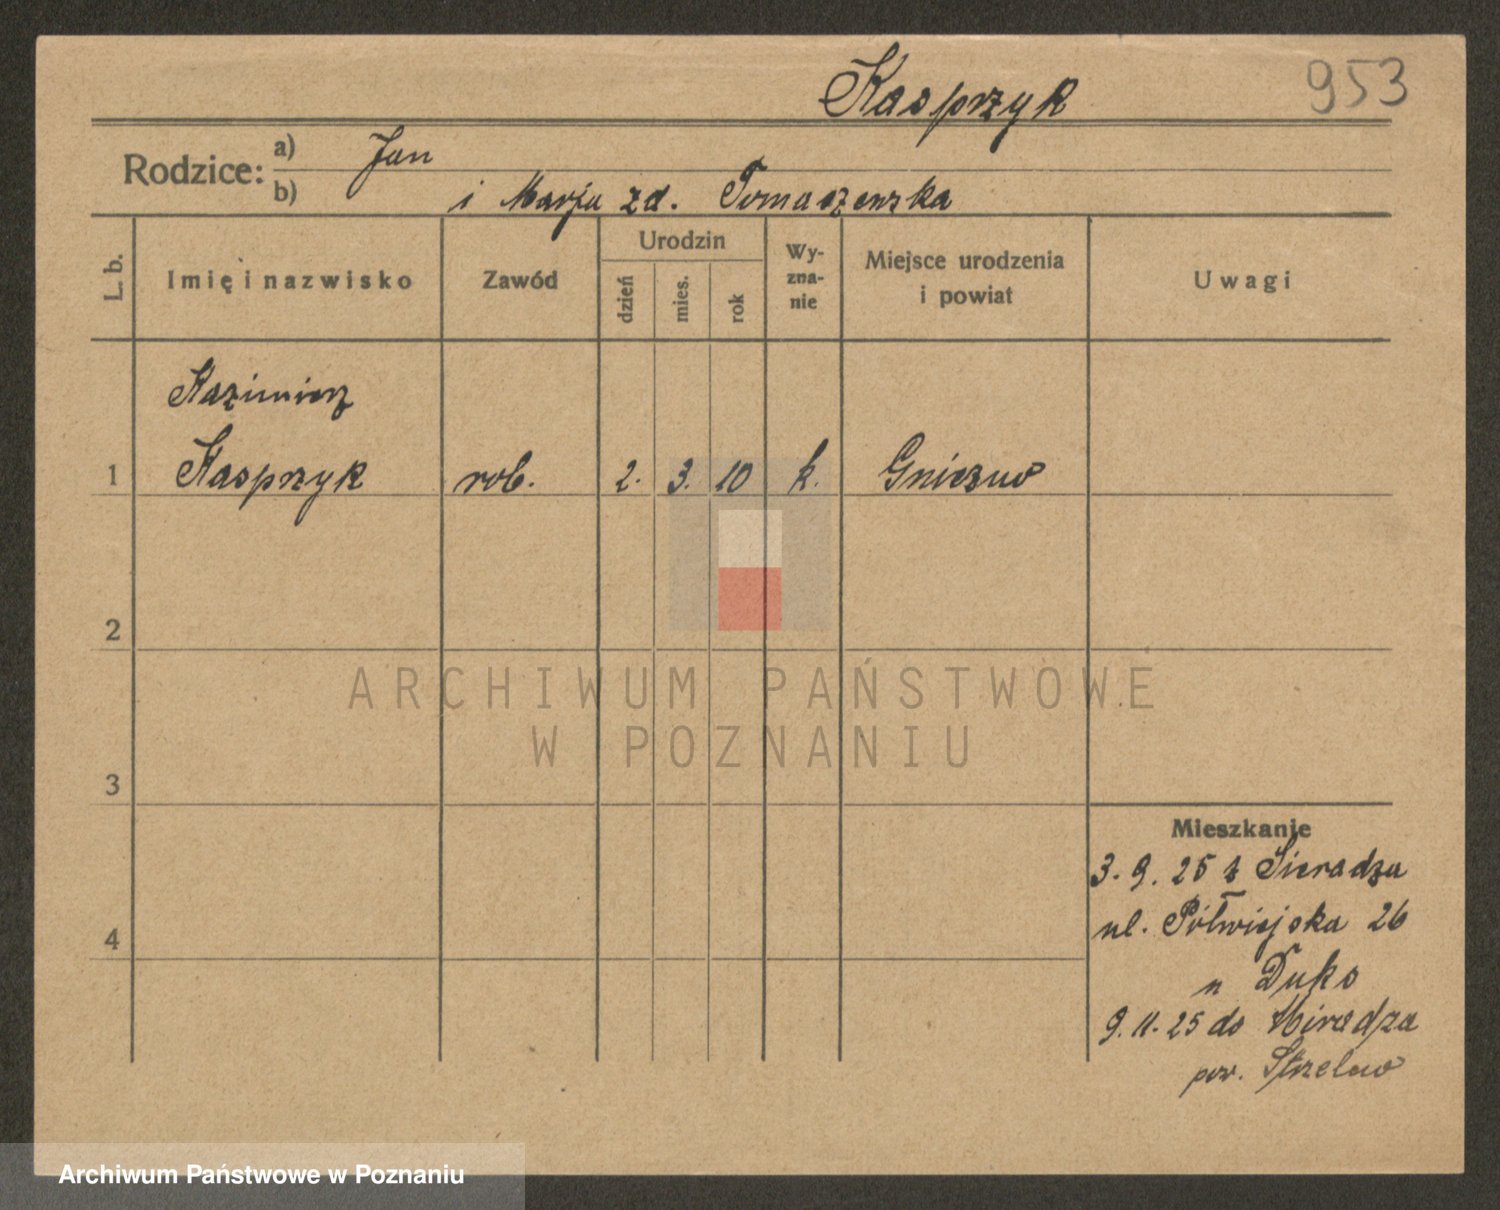 Kasprzyk 953
Rodzice:
a) Jan
b) i Marja zd. Tomaszewska
L. b.
Imię i nazwisko
Zawód
Urodzin
dzień
mies.
rok
Wy-
zna-
nie
Miejsce urodzenia
i powiat
Uwagi
Kazimierz
1 Kasprzyk rob. 2. 3. 10 k. Gniezno
2
ARCHIWUM PAŃSTWOWE
W POZNANIU
3
Mieszkanie
3. 9. 25 z Sieradza
4
ul. Półwiejska 26
u Duko
9. 11. 25 do Miradza
pow. Strzelno
Archiwum Państwowe w Poznaniu